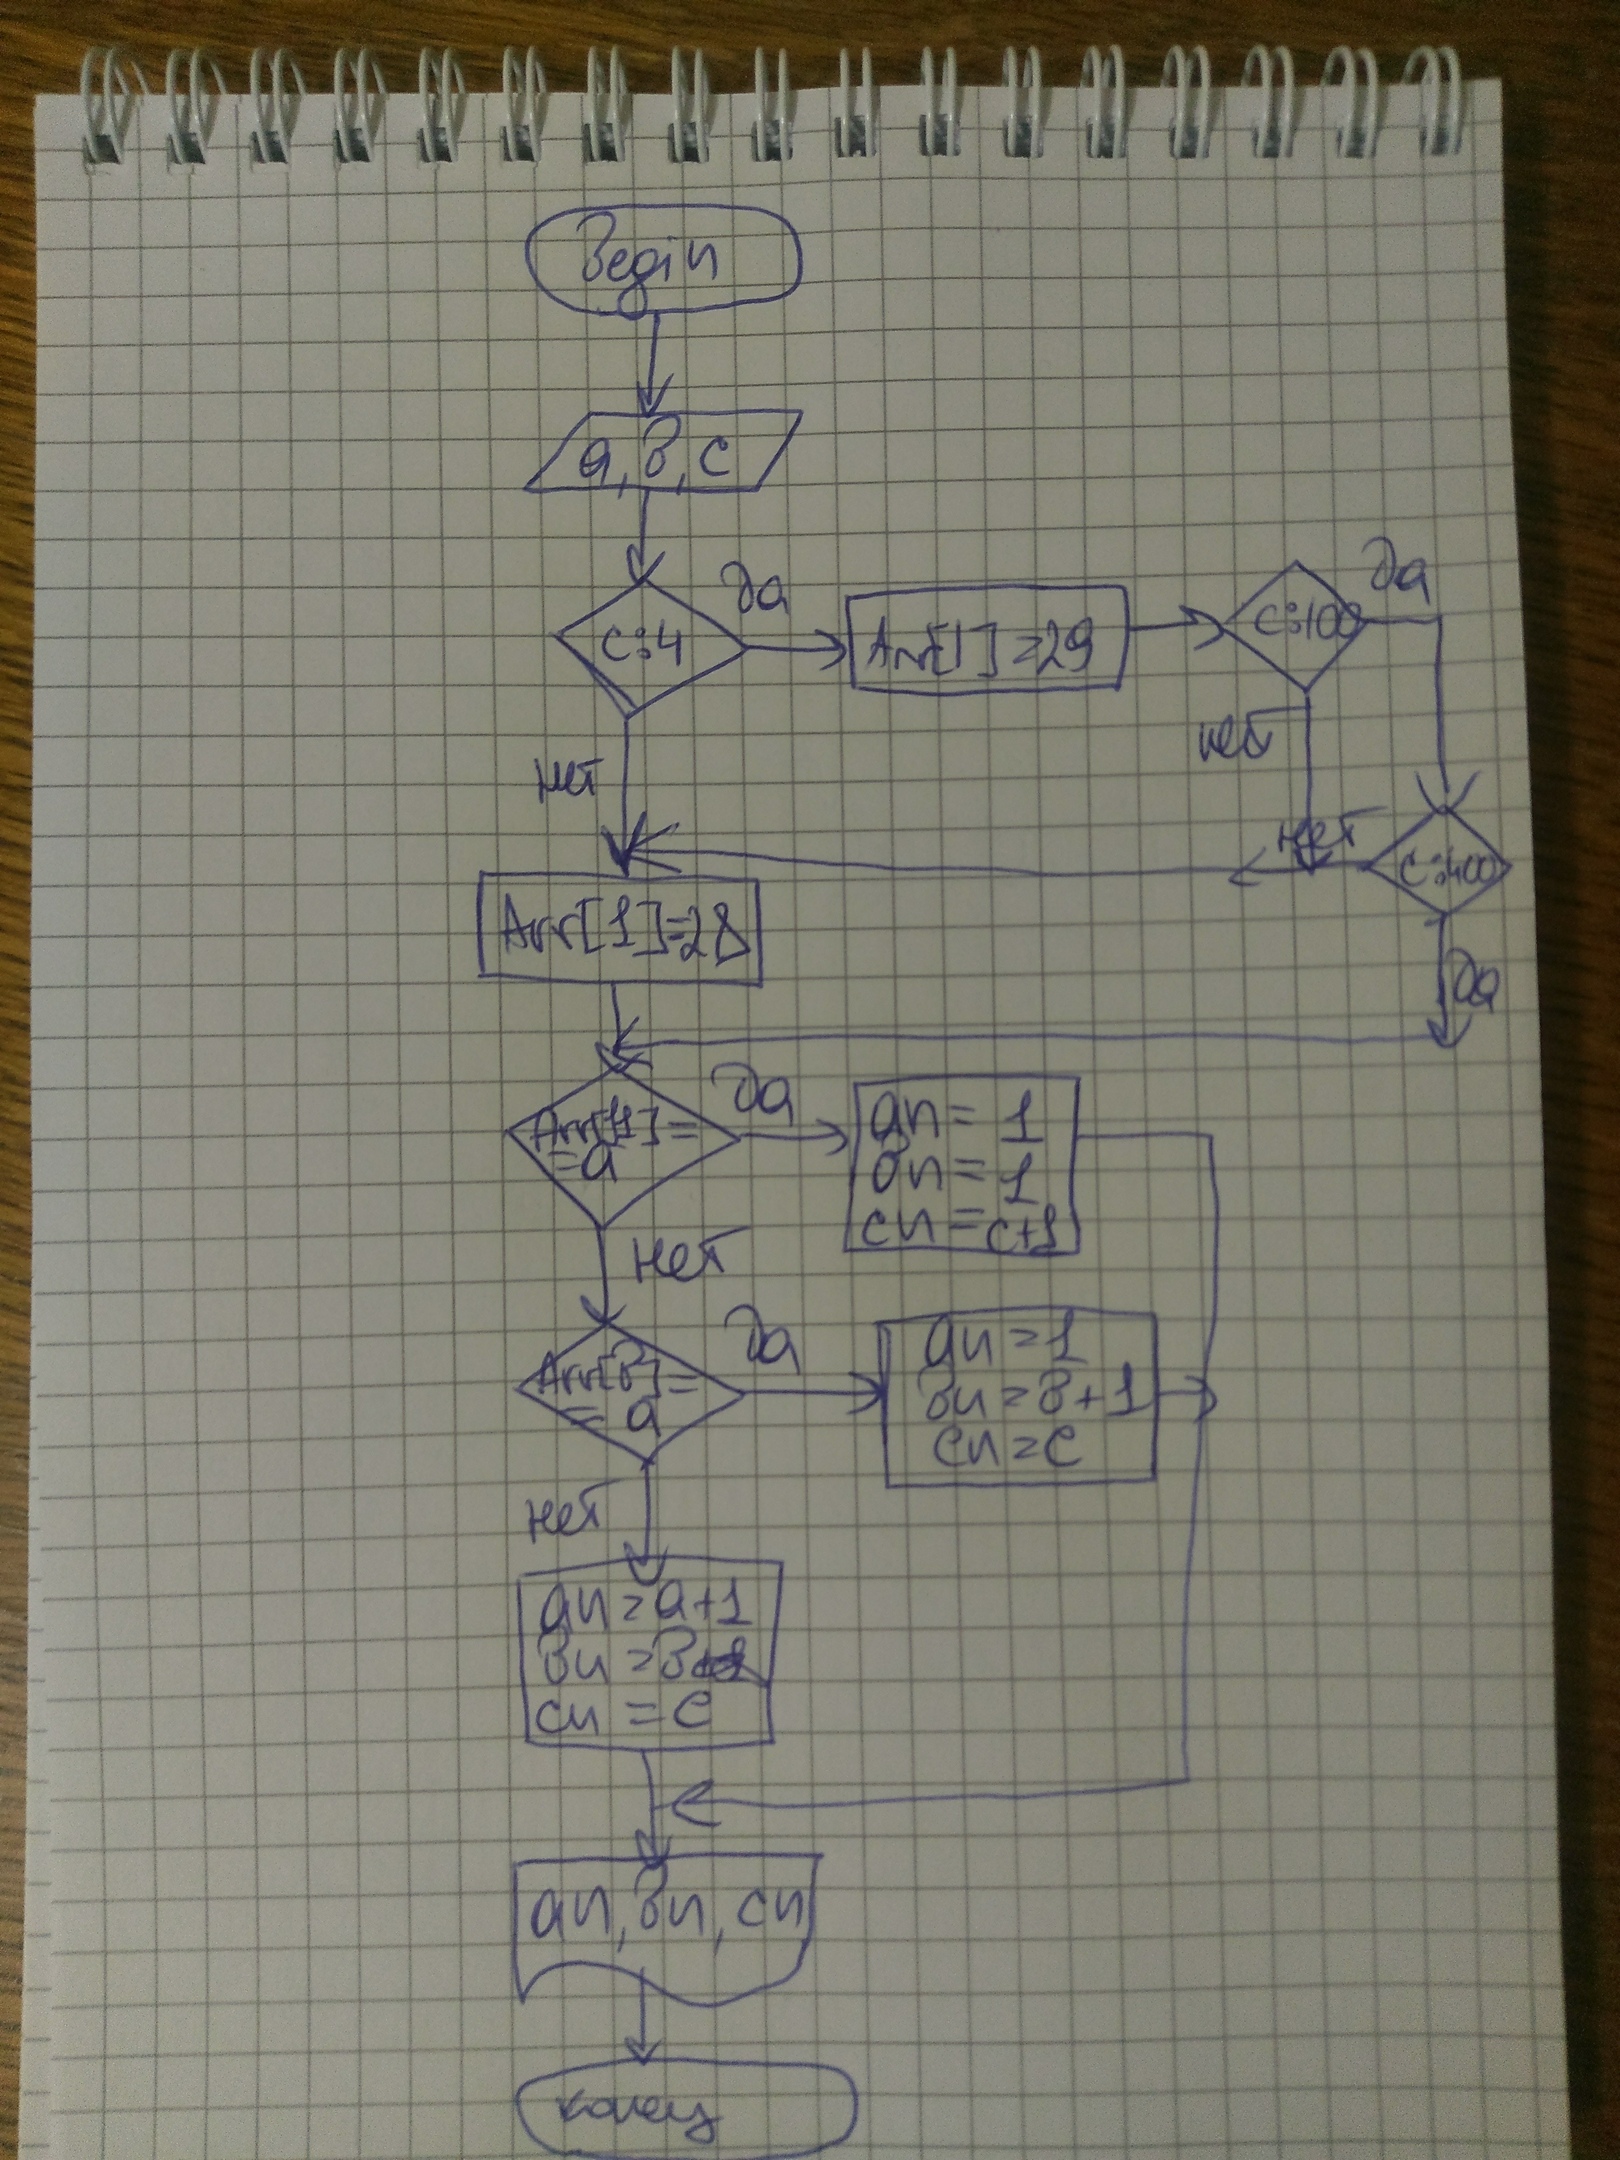 Begin
a, в, c
c:4
да
Arr[1]=29
c:100
да
нет
нет
нет
c:400
Arr[1]=28
да
Arr[11]=
=a
да
an = 1
вn = 1
cn = c+1
нет
Arr[в]=
= a
да
an = 1
вn = в+1
cn = c
нет
an = a+1
вn = в
cn = c
an, вn, cn
конец